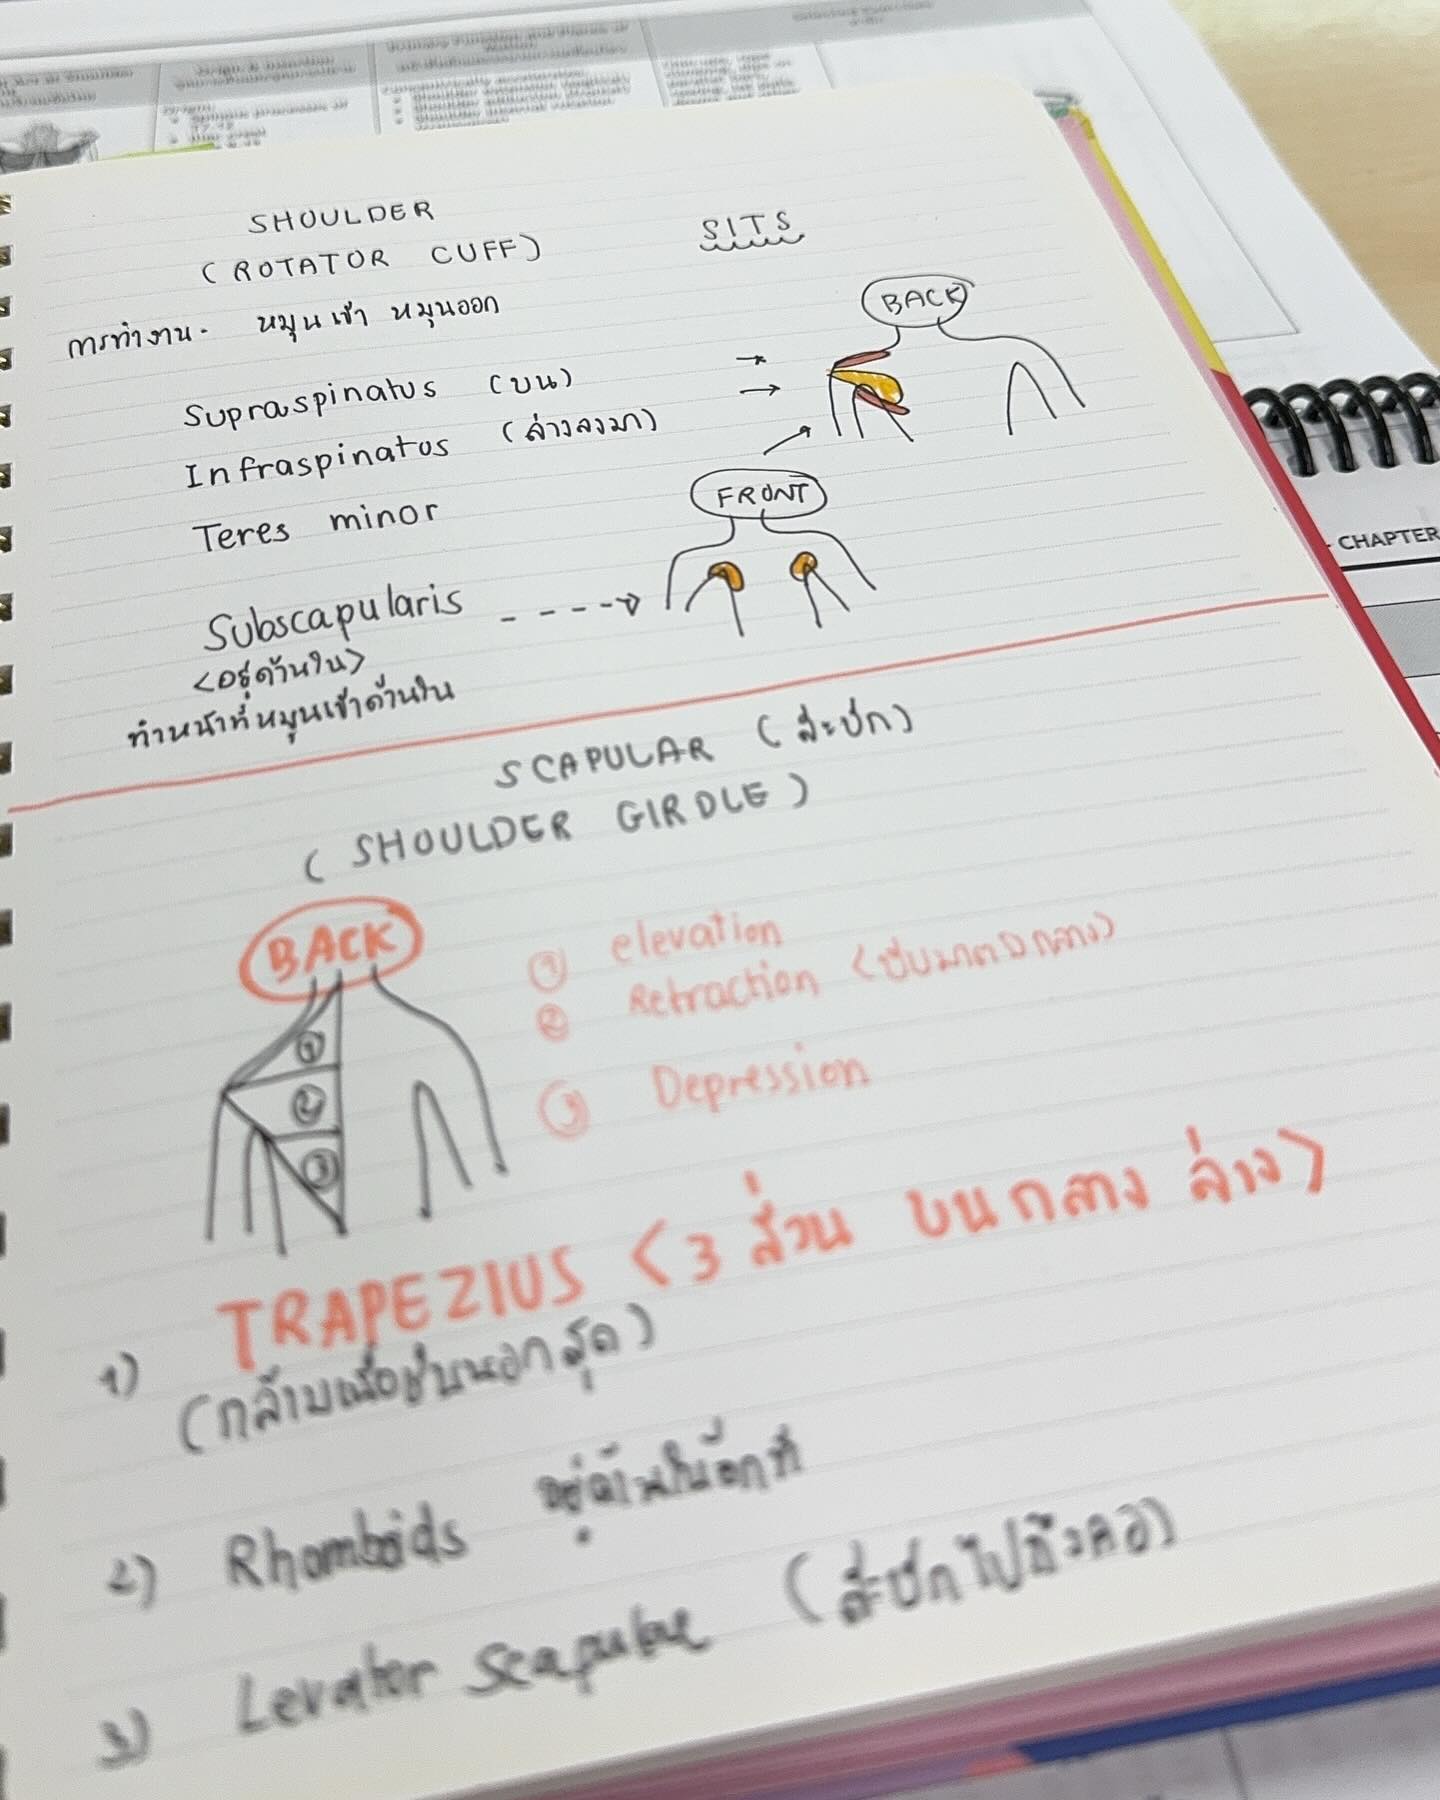 SHOULDER
(ROTATOR CUFF)
SITS
การทำงาน - หมุนเข้า หมุนออก
BACK
Supraspinatus (บน)
Infraspinatus (ล่างลงมา)
Teres minor
FRONT
Subscapularis
<อยู่ด้านใน>
ทำหน้าที่หมุนเข้าด้านใน
SCAPULAR (สะบัก)
(SHOULDER GIRDLE)
BACK
① elevation
② Retraction <บีบมาตรงกลาง>
③ Depression
①
②
③
1) TRAPEZIUS <3 ส่วน บน กลาง ล่าง>
(กล้ามเนื้อชั้นนอกสุด)
2) Rhomboids อยู่ด้านในอีกที
3) Levator Scapulae (สะบักไปถึงคอ)
CHAPTER